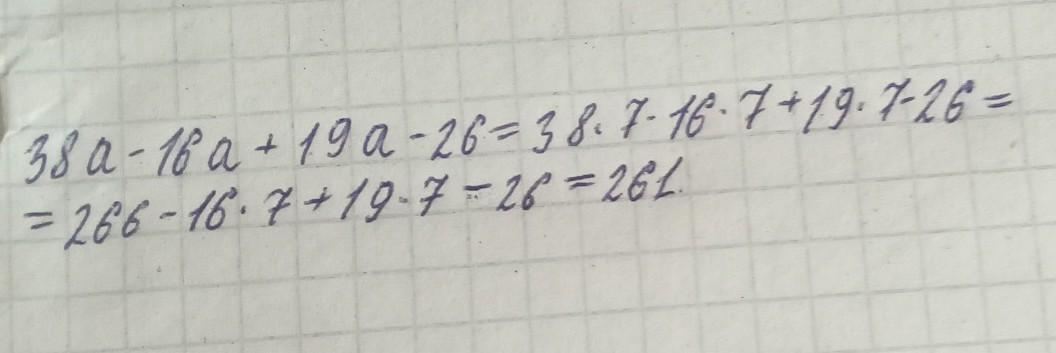 38a - 16a + 19a - 26 = 38 · 7 - 16 · 7 + 19 · 7 - 26 =
= 266 - 16 · 7 + 19 · 7 - 26 = 261.